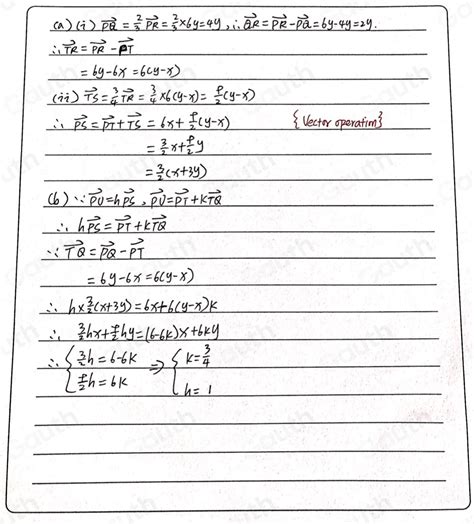 (a) (i) PQ = 2/3 PR = 2/3 × 6y = 4y, ∴ QR = PR - PQ = 6y - 4y = 2y.
∴ TR = PR - PT
= 6y - 6x = 6(y-x)
(ii) TS = 3/4 TR = 3/4 × 6(y-x) = 9/2 (y-x)
∴ PS = PT + TS = 6x + 9/2 (y-x)   { Vector operation }
= 3/2 x + 9/2 y
= 3/2 (x+3y)
(b) ∵ PU = hPS, PU = PT + KTQ
∴ hPS = PT + KTQ
∵ TQ = PQ - PT
= 6y - 6x = 6(y-x)
∴ h × 3/2 (x+3y) = 6x + 6(y-x)K
∴ 3/2 hx + 9/2 hy = (6-6K)x + 6Ky
∴ { 3/2 h = 6-6K ⇒ { K = 3/4
9/2 h = 6K   h = 1